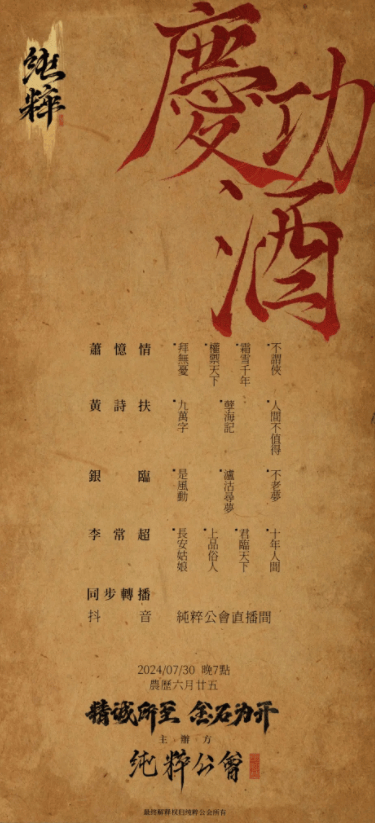 純粹
慶功酒
蕭憶情
·不謂俠
·霜雪千年
·權禦天下
·拜無憂
黃詩扶
·人間不值得
·孽海記
·九萬字
銀臨
·不老夢
·瀘沽尋夢
·是風動
李常超
·十年人間
·君臨天下
·上品俗人
·長安姑娘
同步轉播
抖音 純粹公會直播間
2024/07/30 晚7點
農歷六月廿五
精诚所至 金石为开
主辦方
純粹公會
最终解释权归纯粹公会所有